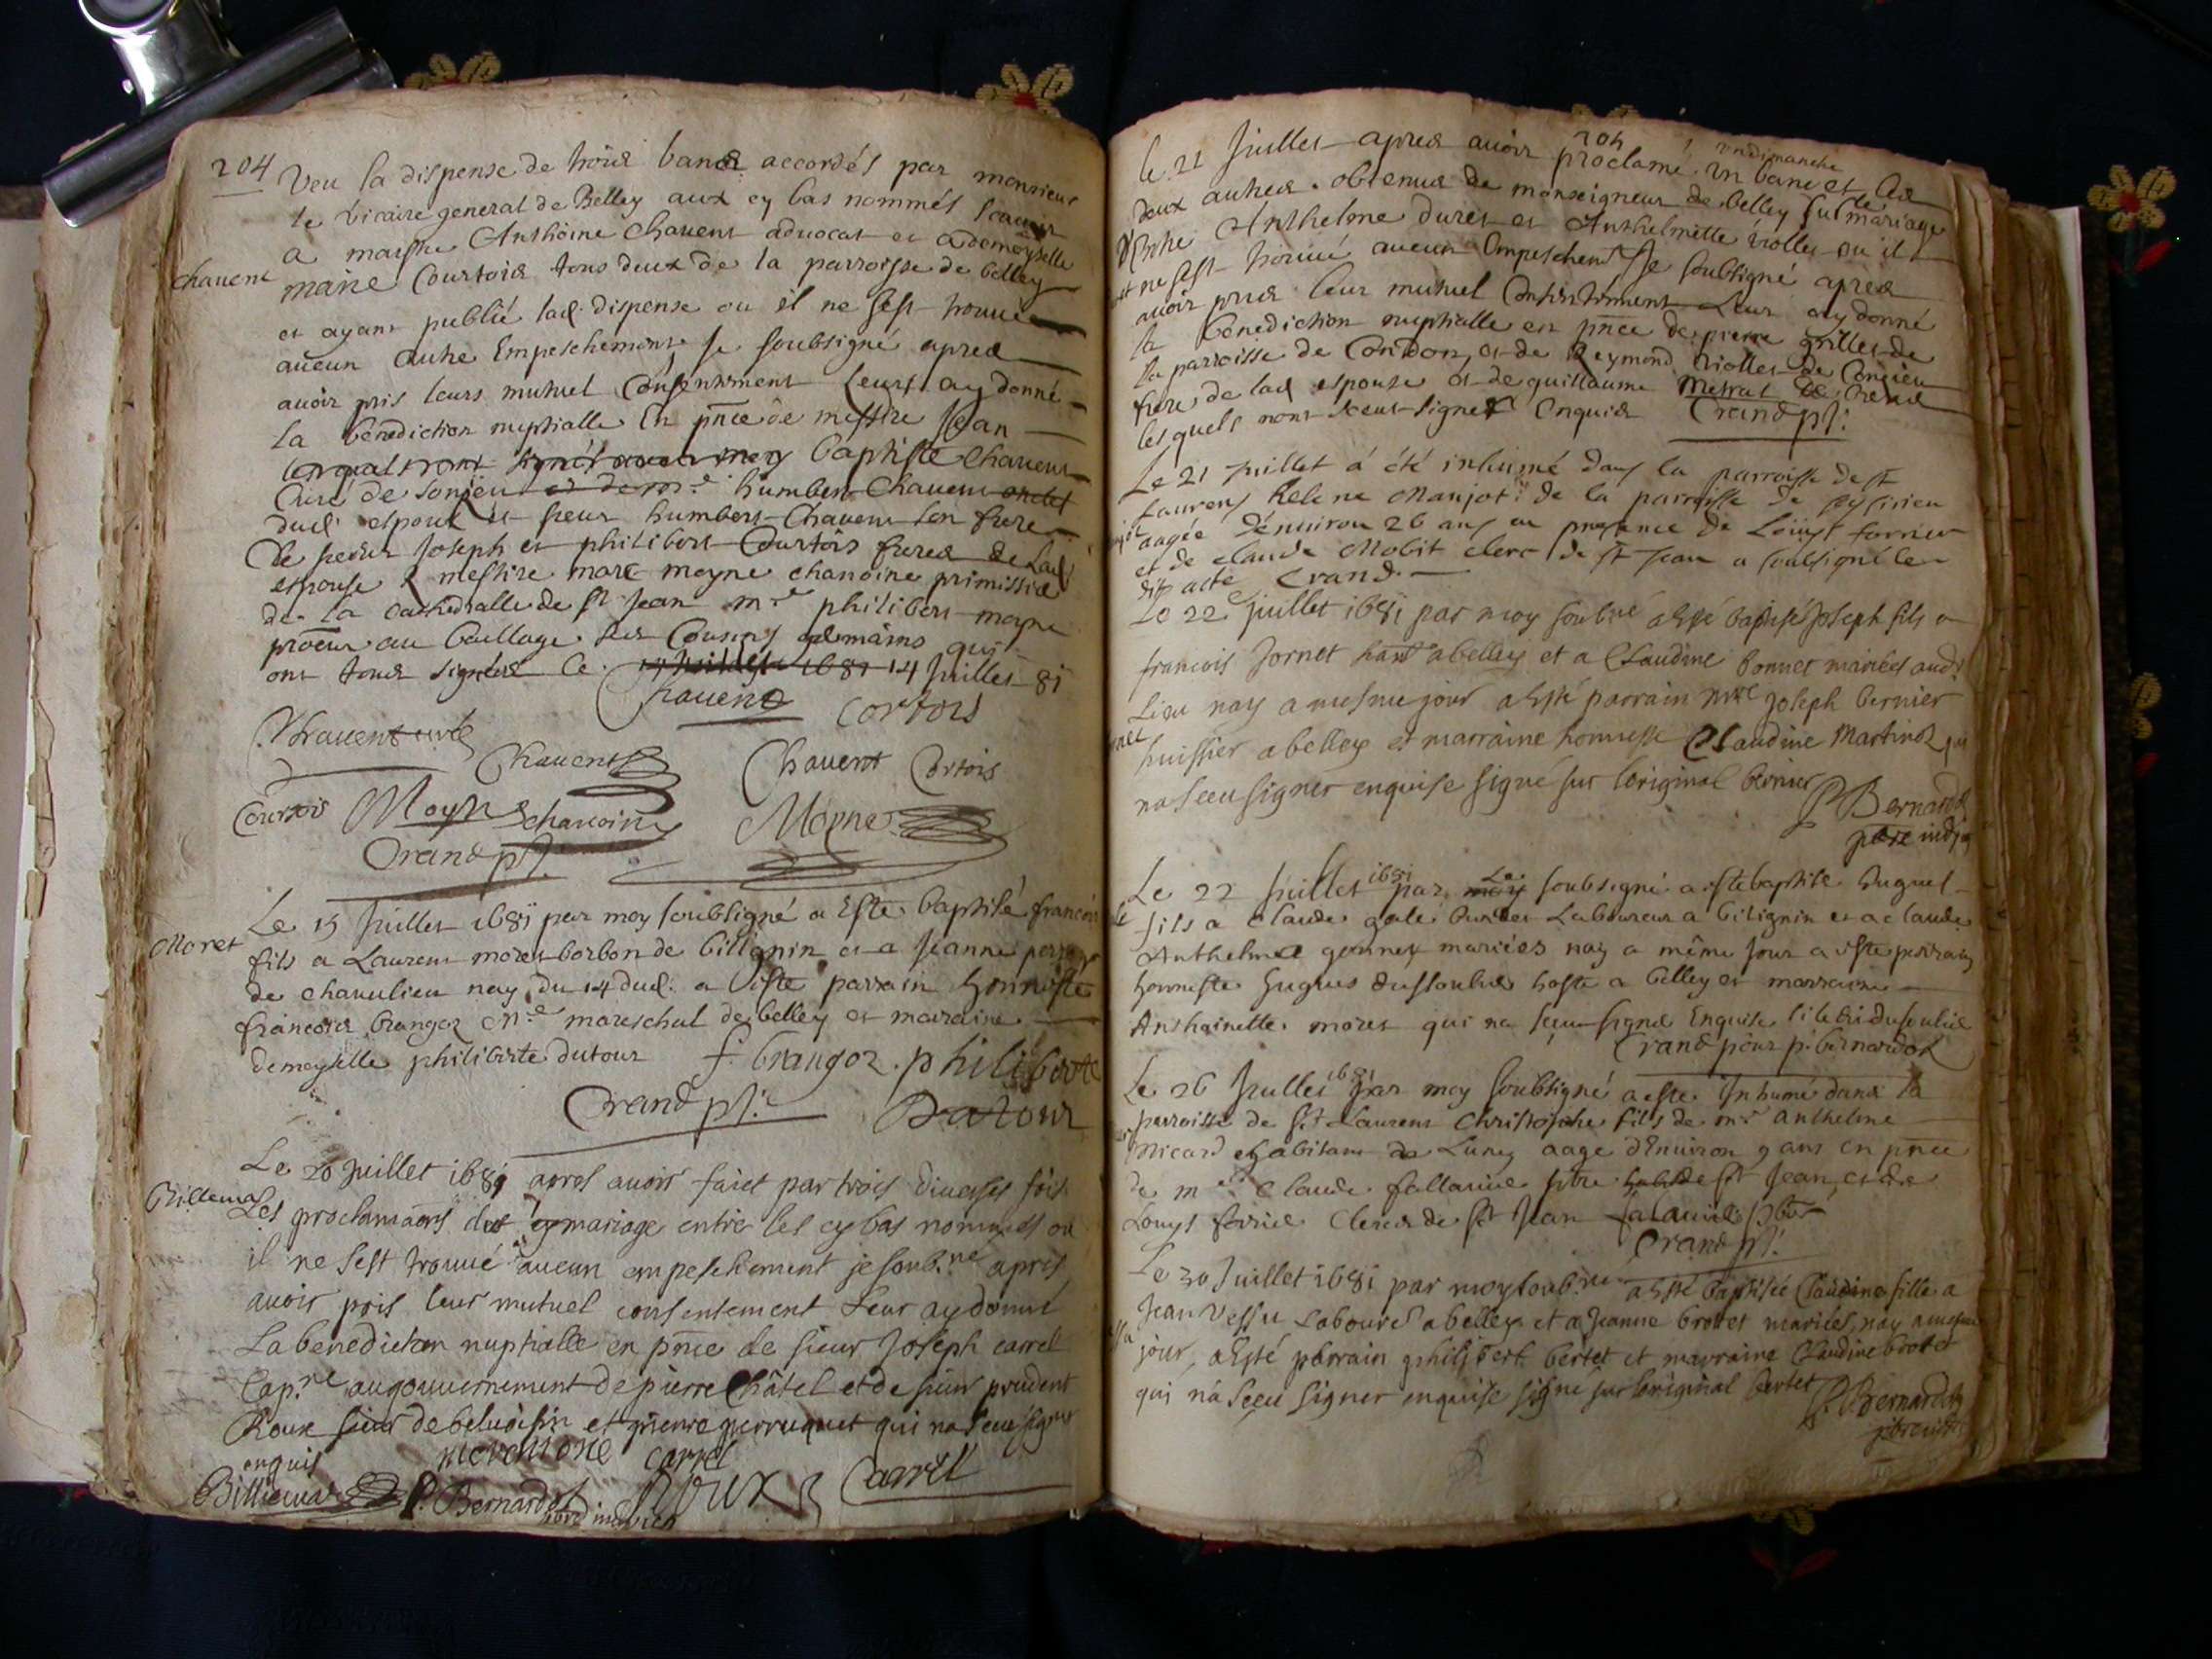 204
Veu la dispense de trois bancs accordés par monsieur
le vicaire general de Belley aux cy bas nommés scavoir
a maistre Anthoine Chavent advocat et a demoyselle
Chavent
marie Courtois tous deux de la parroisse de belley
et ayant publié lad. dispense ou il ne sest trouvé
aucun autre Empeschement Je soubsigné apres
avoir pris leurs mutuel Consentement leurs ay donné
la benediction nuptialle En pnce de messire Jean
baptiste chavent
Curé de humbert Chavent
dud. espoux et sieur humbert Chavent son frere
De sieurs Joseph et philibert Courtois freres de lad.
espouse & messire marc moyne chanoine
de la cathedralle de st Jean mre philibert moyne
procur au baillage ses Cousins germains qui
ont tous signés ce 14 Juillet 81
Chavent
Cortois
Chavent curé
Chavent
Chavent
Cortois
Courtois
Moyne chanoine
Moyne
Crand ptr.
Le 15 Juillet 1681 par moy soubsigné a Esté baptisé francois
Moret
fils a Laurent moret borbon de billignin et a Jeanne
de chavulieu nay du 14 dud. a Esté parrain honneste
francois brangoz me mareschal de belley et marraine
demoyselle philiberte dutour f. brangoz. philiberte
Crand ptr.
Dutour
Le 20 Juillet 1681 apres avoir faict par trois diverses fois
Billiema
Les proclamaons du mariage entre les cy bas nommés ou
il ne sest trouvé aucun empeschement je soub.né apres
avoir pris leur mutuel consentement Leur ay donné
La benediction nuptialle en pnce de sieur Joseph carrel
Cap.ne au gouvernement de pierre Châtel et de sieur prudent
Roux sieur de beluoisin et pierre perruquet qui na sceu signer
enquis
carrel
Billiemat
P. Bernardot
Roux
Carrel
204
le 21 Juillet apres avoir proclamé un banc un dimanche et les
deux autres obtenus de monseigneur de belley sur le mariage
d'Entre Anthelme duret et Anthelmette violles ou il
ne sest trouvé aucun Empeschemt Je soubsigné apres
avoir pris leur mutuel Consentement Leur ay donné
la benediction nuptialle en pnce de pierre grilles de
la parroisse de Condon, et de Reymond violles de Conzieu
frere de lad. espouse et de guillaume Mestrat de
lesquels nont sceu signer Enquis Crand ptr.
Le 21 Juillet a été inhumé dans la parroisse de st
Laurens helene Manjot de la parroisse de
aagée d'environ 26 ans en presence de Loüys forrier
et de claude Mobit clerc de st Jean a soubsigné le
dit acte Crand.
Le 22 Juillet 1681 par moy soub.né a esté baptisé Joseph fils a
francois Jornet hant a belley et a Claudine bonnet mariés aud.
Lieu nay a mesme jour a Esté parrain mre Joseph bernier
huissier a belley et marraine honneste Claudine Martinot qui
na sceu signer enquise signé sur loriginal bernier
P. Bernardot
Le 22 Juillet 1681 par Le soubsigné a esté baptisé huguet
fils a Claude Laboureur a bilignin et a claude
Anthelme mariés nay a même Jour a esté parrain
honneste hugues dusoulié hoste a belley et marraine
Anthoinette moret qui na sceu signé Enquise
Crand pour p. bernardot
Le 26 Juillet 1681 par moy soubsigné a esté Inhumé dans la
parroisse de st Laurens Christophe fils de mr anthelme
micard habitant de aage d'Environ 9 ans en pnce
de mre Claude fallavier ptre de st Jean, et de
Louys forrier Clerc de st Jean
Crand ptr.
Le 30 Juillet 1681 par moy soub.né a esté baptisée Claudine fille a
Jean vessu Laboureur a belley et a Jeanne brottet mariés, nay a mesme
jour, a Esté parrain philibert bertet et marraine Claudine brottet
qui n'a sceu signer enquise signé sur loriginal bertet P. Bernardot